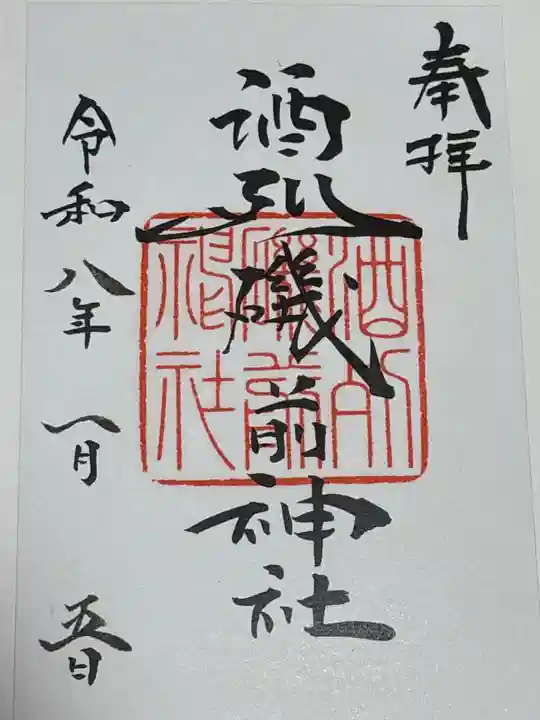 奉拝
酒列磯前神社
酒列
磯前
神社
令和八年一月五日